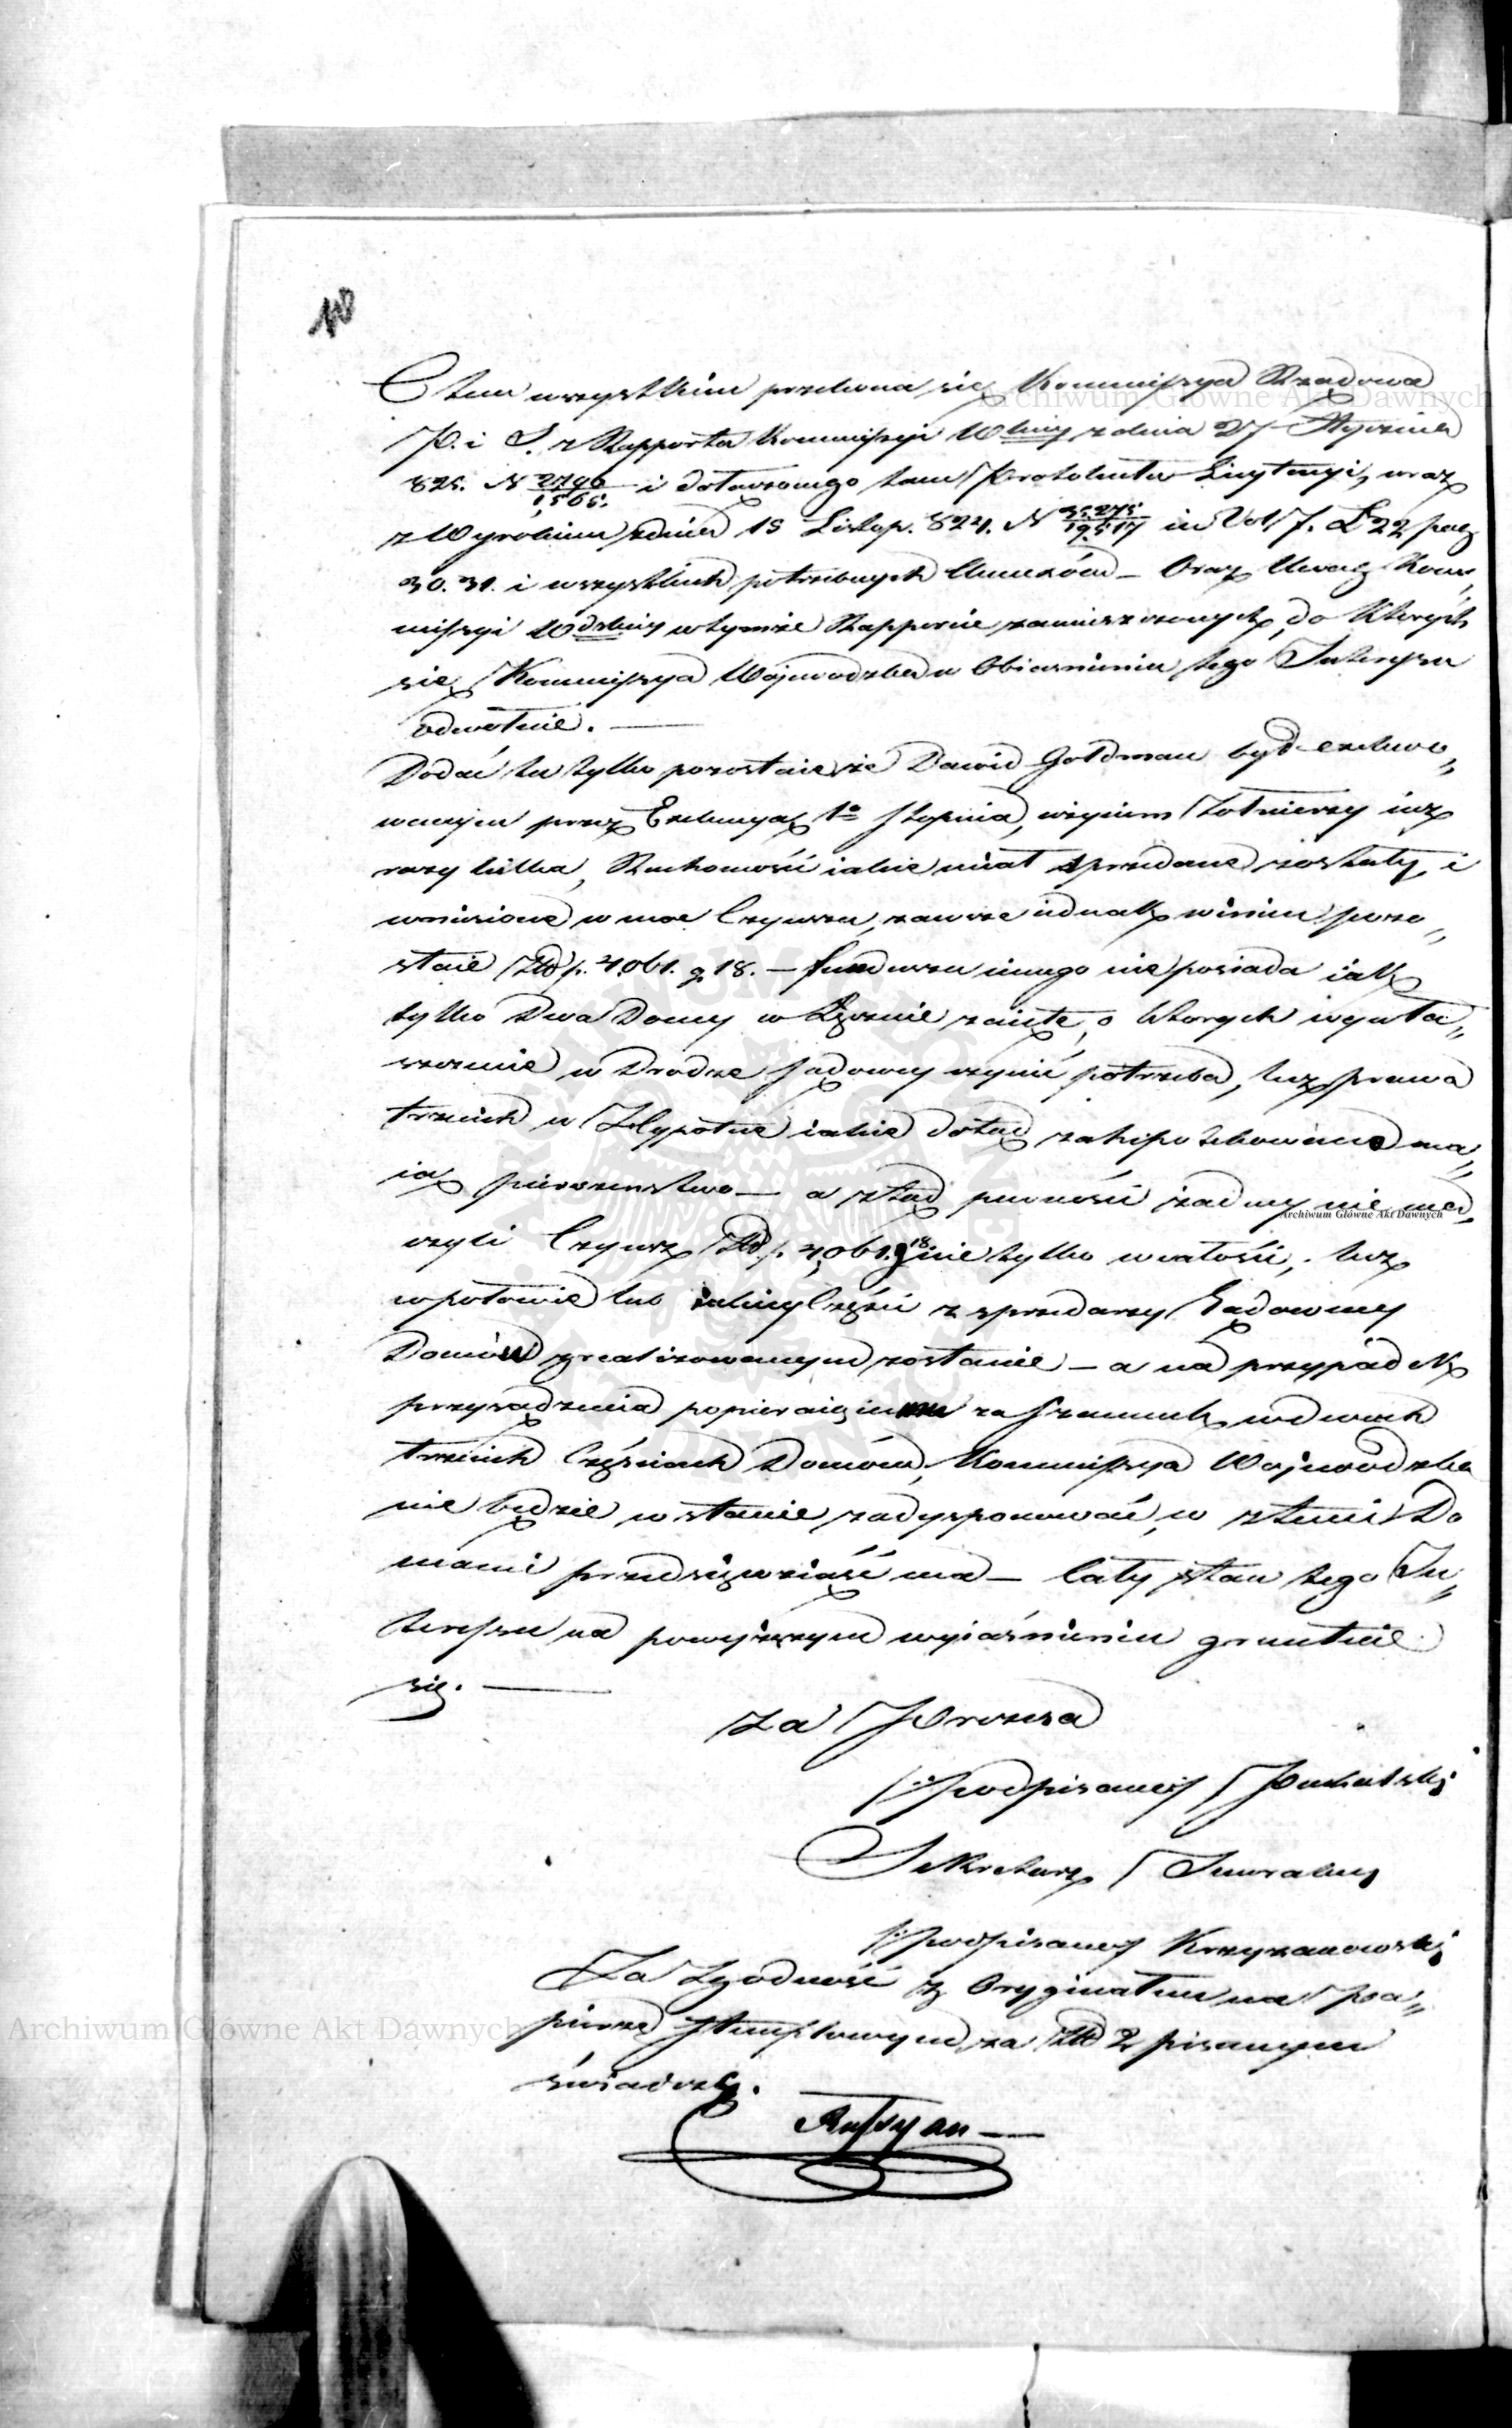 O tem wszystkim przekona się Kommissya Rządowa
P. i S. z Rapportu Kommissyi Wdzkiey z dnia 27 Stycznia
825. N 2796/1,565. i dołączonego tam Protokułu Licytacyi, wraz
z Wyrokiem z dnia 15 Listop. 824. N 35275/19517 in Vol 7. L 22 pag
30. 31. i wszystkich potrzebnych Annexów – Oraz Uwag Kom„
missyi Wdzkiey w tymże Rapporcie zamieszczonych, do których
się Kommissya Wojewodzka w Obiaśnieniu tego Interessu
odwołuie. —
Dodać tu tylko pozostaie, że Dawid Goldman był exekwo„
wanym przez Exekucyą 1o Stopnia, czyniono Żołnierzy iuż
razy kilka, Ruchomości iakie miał sprzedane zostały, i
wniesione w moc Czynszu, zawsze iednak winien pozo„
staie Złp. 4,061. g 18. – funduszu innego nie posiada iak
tylko Dwa Domy w Łęcznie zaięte, o których wywła„
szczenie w Drodze Sądowey czynić potrzeba, lecz prawa
trzecich w Hypotece iakie dotąd zahipotekowane ma„
ią pierwszenstwo – a ztąd pewności żadney nie ma,
czyli Czynsz Złp. 4,061. g 18 nie tylko w całości, lecz
w połowie lub iakiey Części z sprzedaży Sądowey
Domów zrealizowanym zostanie – a na przypadek
przysądzenia popieraiącemu za Szacunek w dwoch
trzecich Częściach Domów, Kommissya Wojewodzka
nie będzie w stanie zadysponować, co z temi Do
mami przedsięwziąść ma – Cały stan tego In„
teressu na powyższym wyiaśnieniu gruntuie
się. —
Za Prezesa
/:podpisano:/ Puchalski
Sekretarz Jeneralny
/:podpisano:/ Krzyżanowski
Za Zgodność z Oryginałem na Pa„
pierze Stemplowym za Zł 2 pisanym
świadczę.
Archiwum Główne Akt Dawnych
Archiwum Główne Akt Dawnych
Archiwum Główne Akt Dawnych